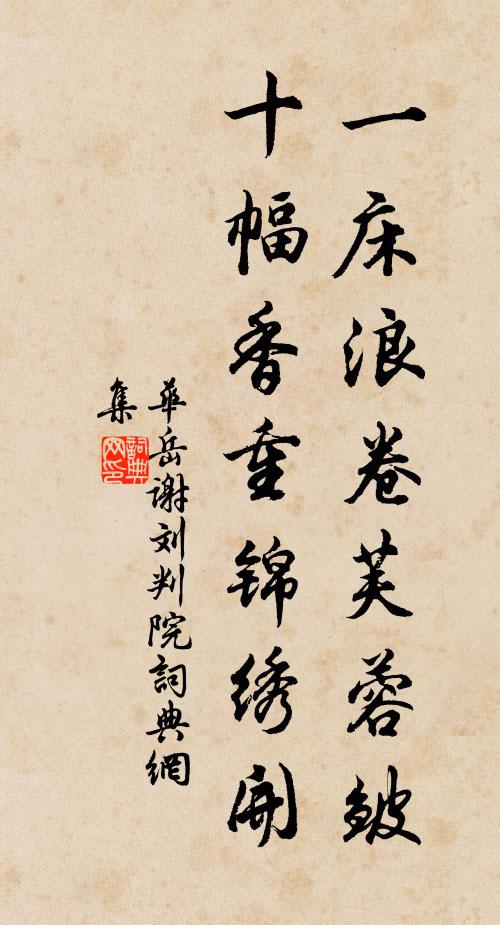 一床浪卷芙蓉皱
十幅香重锦绣開
華岳谢刘判院詞典網
集
詞典網印